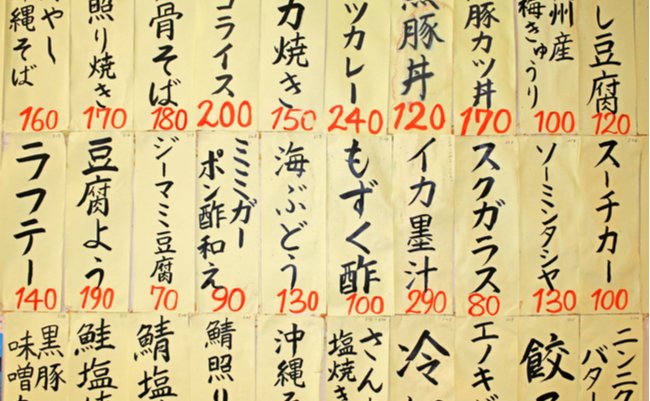 し豆腐
120
州産
梅きゅうり
100
豚カツ丼
170
黒豚丼
120
ツカレー
240
カ焼き
150
ライス
200
骨そば
180
照り焼き
170
やし
縄そば
160
スーチカー
100
ソーミンタシヤ
130
スクガラス
80
イカ墨汁
290
もずく酢
100
海ぶどう
130
ミミガー
ポン酢和え
90
ジーマミ豆腐
70
豆腐よう
190
ラフテー
140
ニンニク
バター
餃
エノキ
冷
さん
塩焼き
沖縄そ
鯖照り
鯖塩
鮭塩
黒豚
味噌